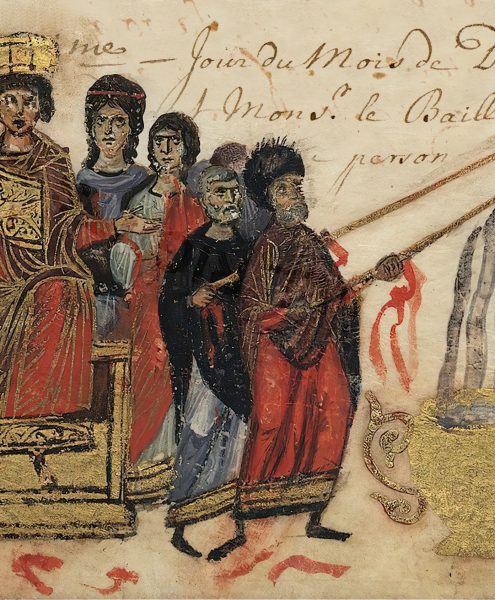 me — Jour du Mois de D
Mons.r le Baill
person